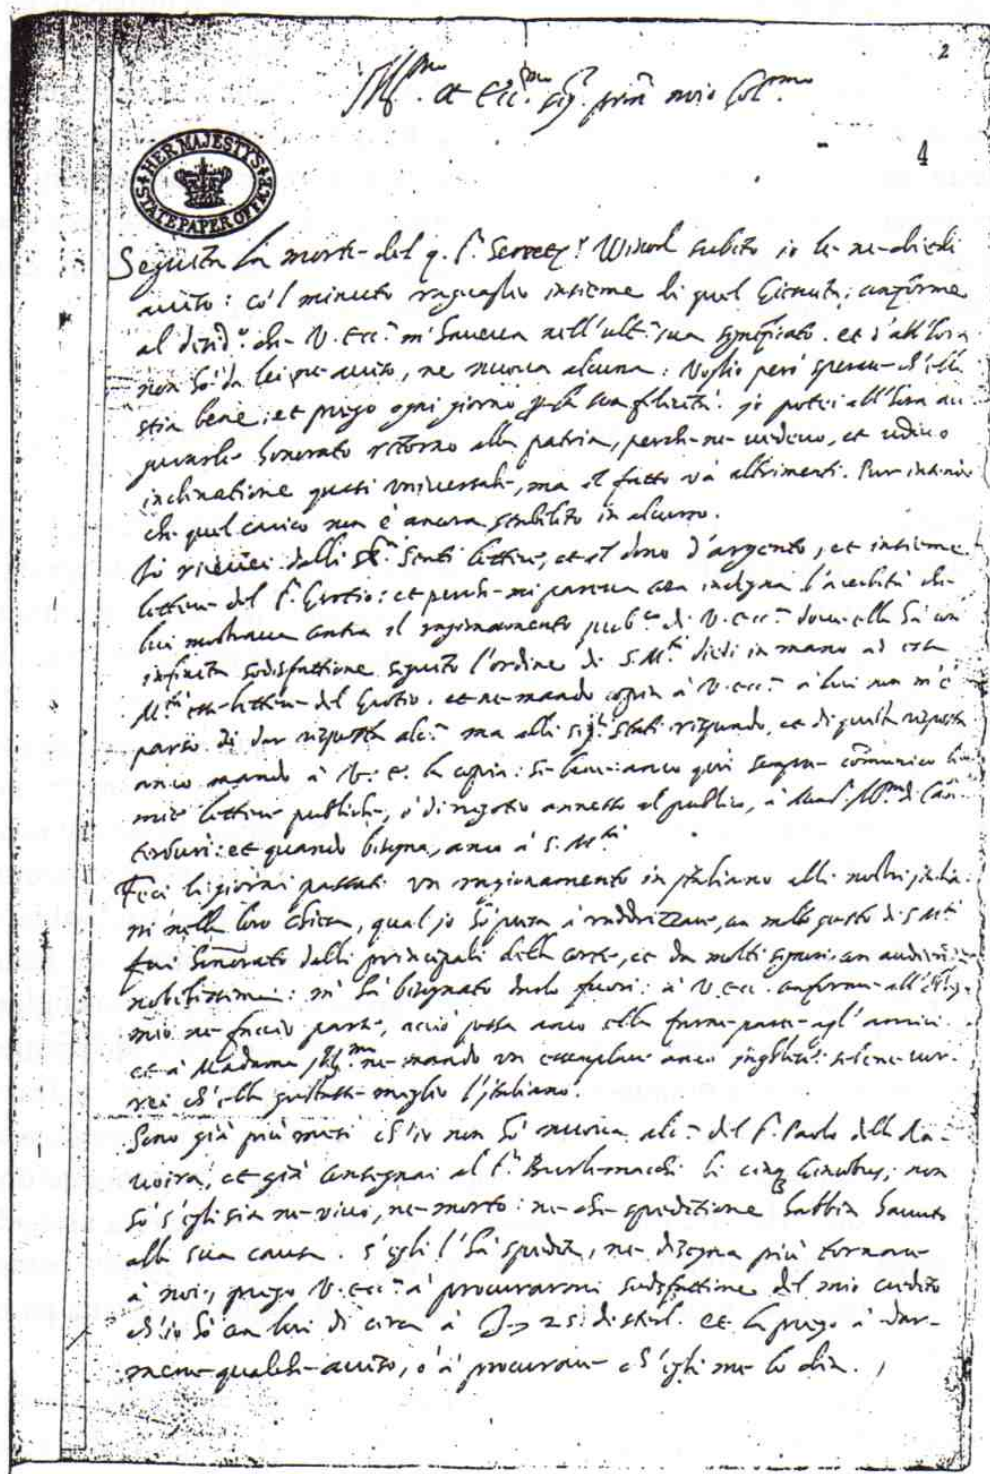 2
Ill.mo et Ecc.mo sig.r pron mio Col.mo
4
HER MAJESTY'S STATE PAPER OFFICE
Seguita la morte del q. S.r Secret.o Winod subito io le ne diedi
aviso: co'l minuto raguaglio insieme di quel; conforme
al desid.o che V. Ecc.a m'haveva nell'ult.a sua significato. et d'all'hora
non hò da lei ne aviso, ne nuova alcuna: Voglio però sperare ch'ella
stia bene, et prego ogni giorno la sua felicità. jo potei all'hora au
gurarle honorato ritorno alla patria, perche ne vedevo, et udivo
inclinatione quasi universale, ma il fatto và altrimenti. Pur intendo
che quel carico non è ancora stabilito in alcuno.
Io ricevei dalli Stati lettere, et il dono d'argento, et insieme
lettere del S.r Grotio: et perche mi pareva cosa indegna l'acerbità che
lui mostrava contra il ragionamento pub.co di V. Ecc.a dove ella hà con
infinita sodisfattione seguito l'ordine di S. M.tà diedi in mano ad essa
M.tà esse lettere del Grotio. et ne mando copia à V. Ecc.a à lui non m'è
parso di dar risposta alc.a ma alli sig.ri Stati rispondo, et di quella risposta
anco mando à V. E. la copia: si bene anco qui sempre comunico le
mie lettere publiche, ò di negotio annesso al publico, à Mons.r Ill.mo di Can
torburi: et quando bisogna, anco à S. M.tà
Feci li giorni passati un ragionamento in jtaliano alli nostri jtalia
ni nella loro chiesa, qual jo hò presa à raddrizzare, con molto gusto di S. M.tà
fui honorato dalli principali della corte, et da molti signori, con audientia
nobilissima: m'hà bisognato darlo fuori: à V. Ecc. conforme all'oblig.
mio ne faccio parte, acciò possa anco ella farne parte agl'amici.
et à Madama Ill.ma ne mando un essemplare anco jnglese: se bene vor
rei ch'ella gustasse meglio l'jtaliano.
Sono già più mesi ch'io non hò nuova alc.a del S.r Paolo della Ra
voira, et già consegnai al S.r Burlemacchi li cinq; non
sò s'egli sia ne vivo, ne morto: ne che speditione habbia havuto
alla sua causa. s'egli l'hà spedita, ne disegna più tornare
à noi, prego V. Ecc.a à procurarmi sodisfattione del mio credito
ch'io hò con lui di circa à 25 di sterl. et la prego à dar
mene qualche aviso, ò à procurare ch'egli me lo dia.